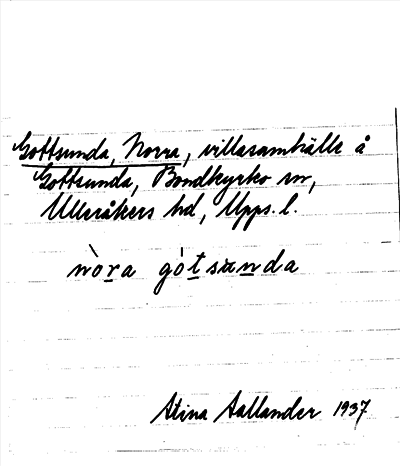 Gottsunda, Norra, villasamhälle å
Gottsunda, Bondkyrko sn,
Ulleråkers hd, Upps. l.
nòra gòtsunda
Stina Aallander 1937